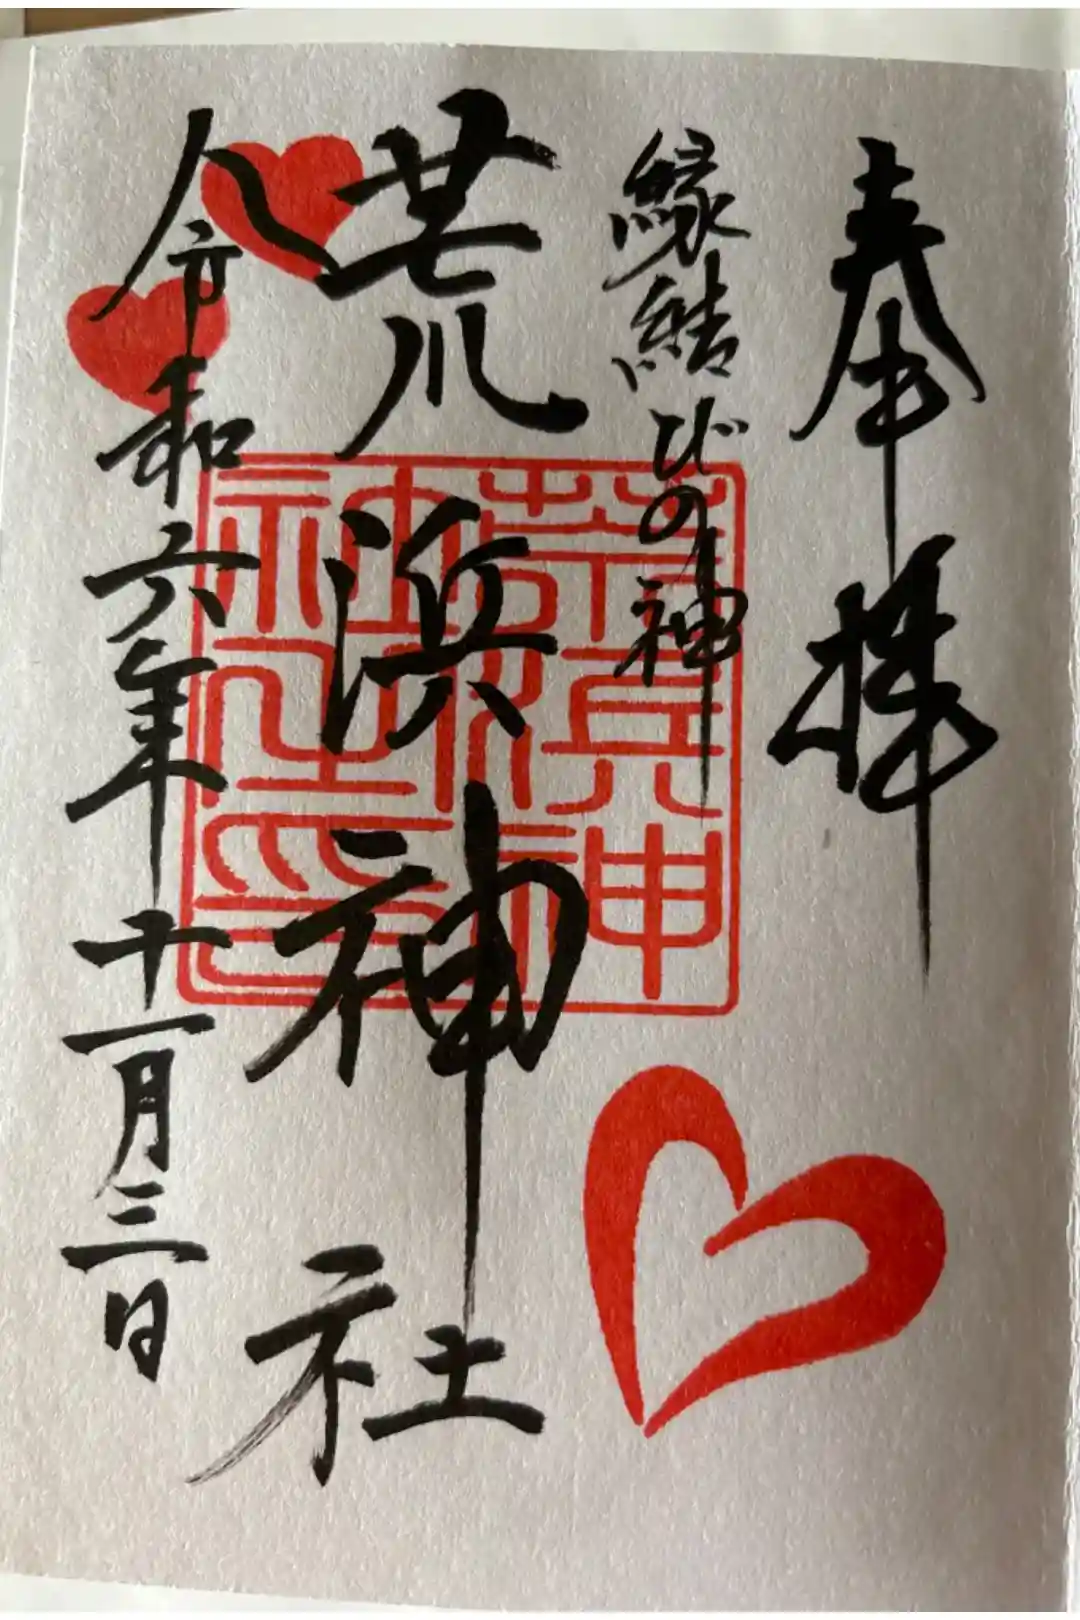 奉拝
縁結びの神
荒浜神社
令和六年十一月三日
荒浜神
社之印